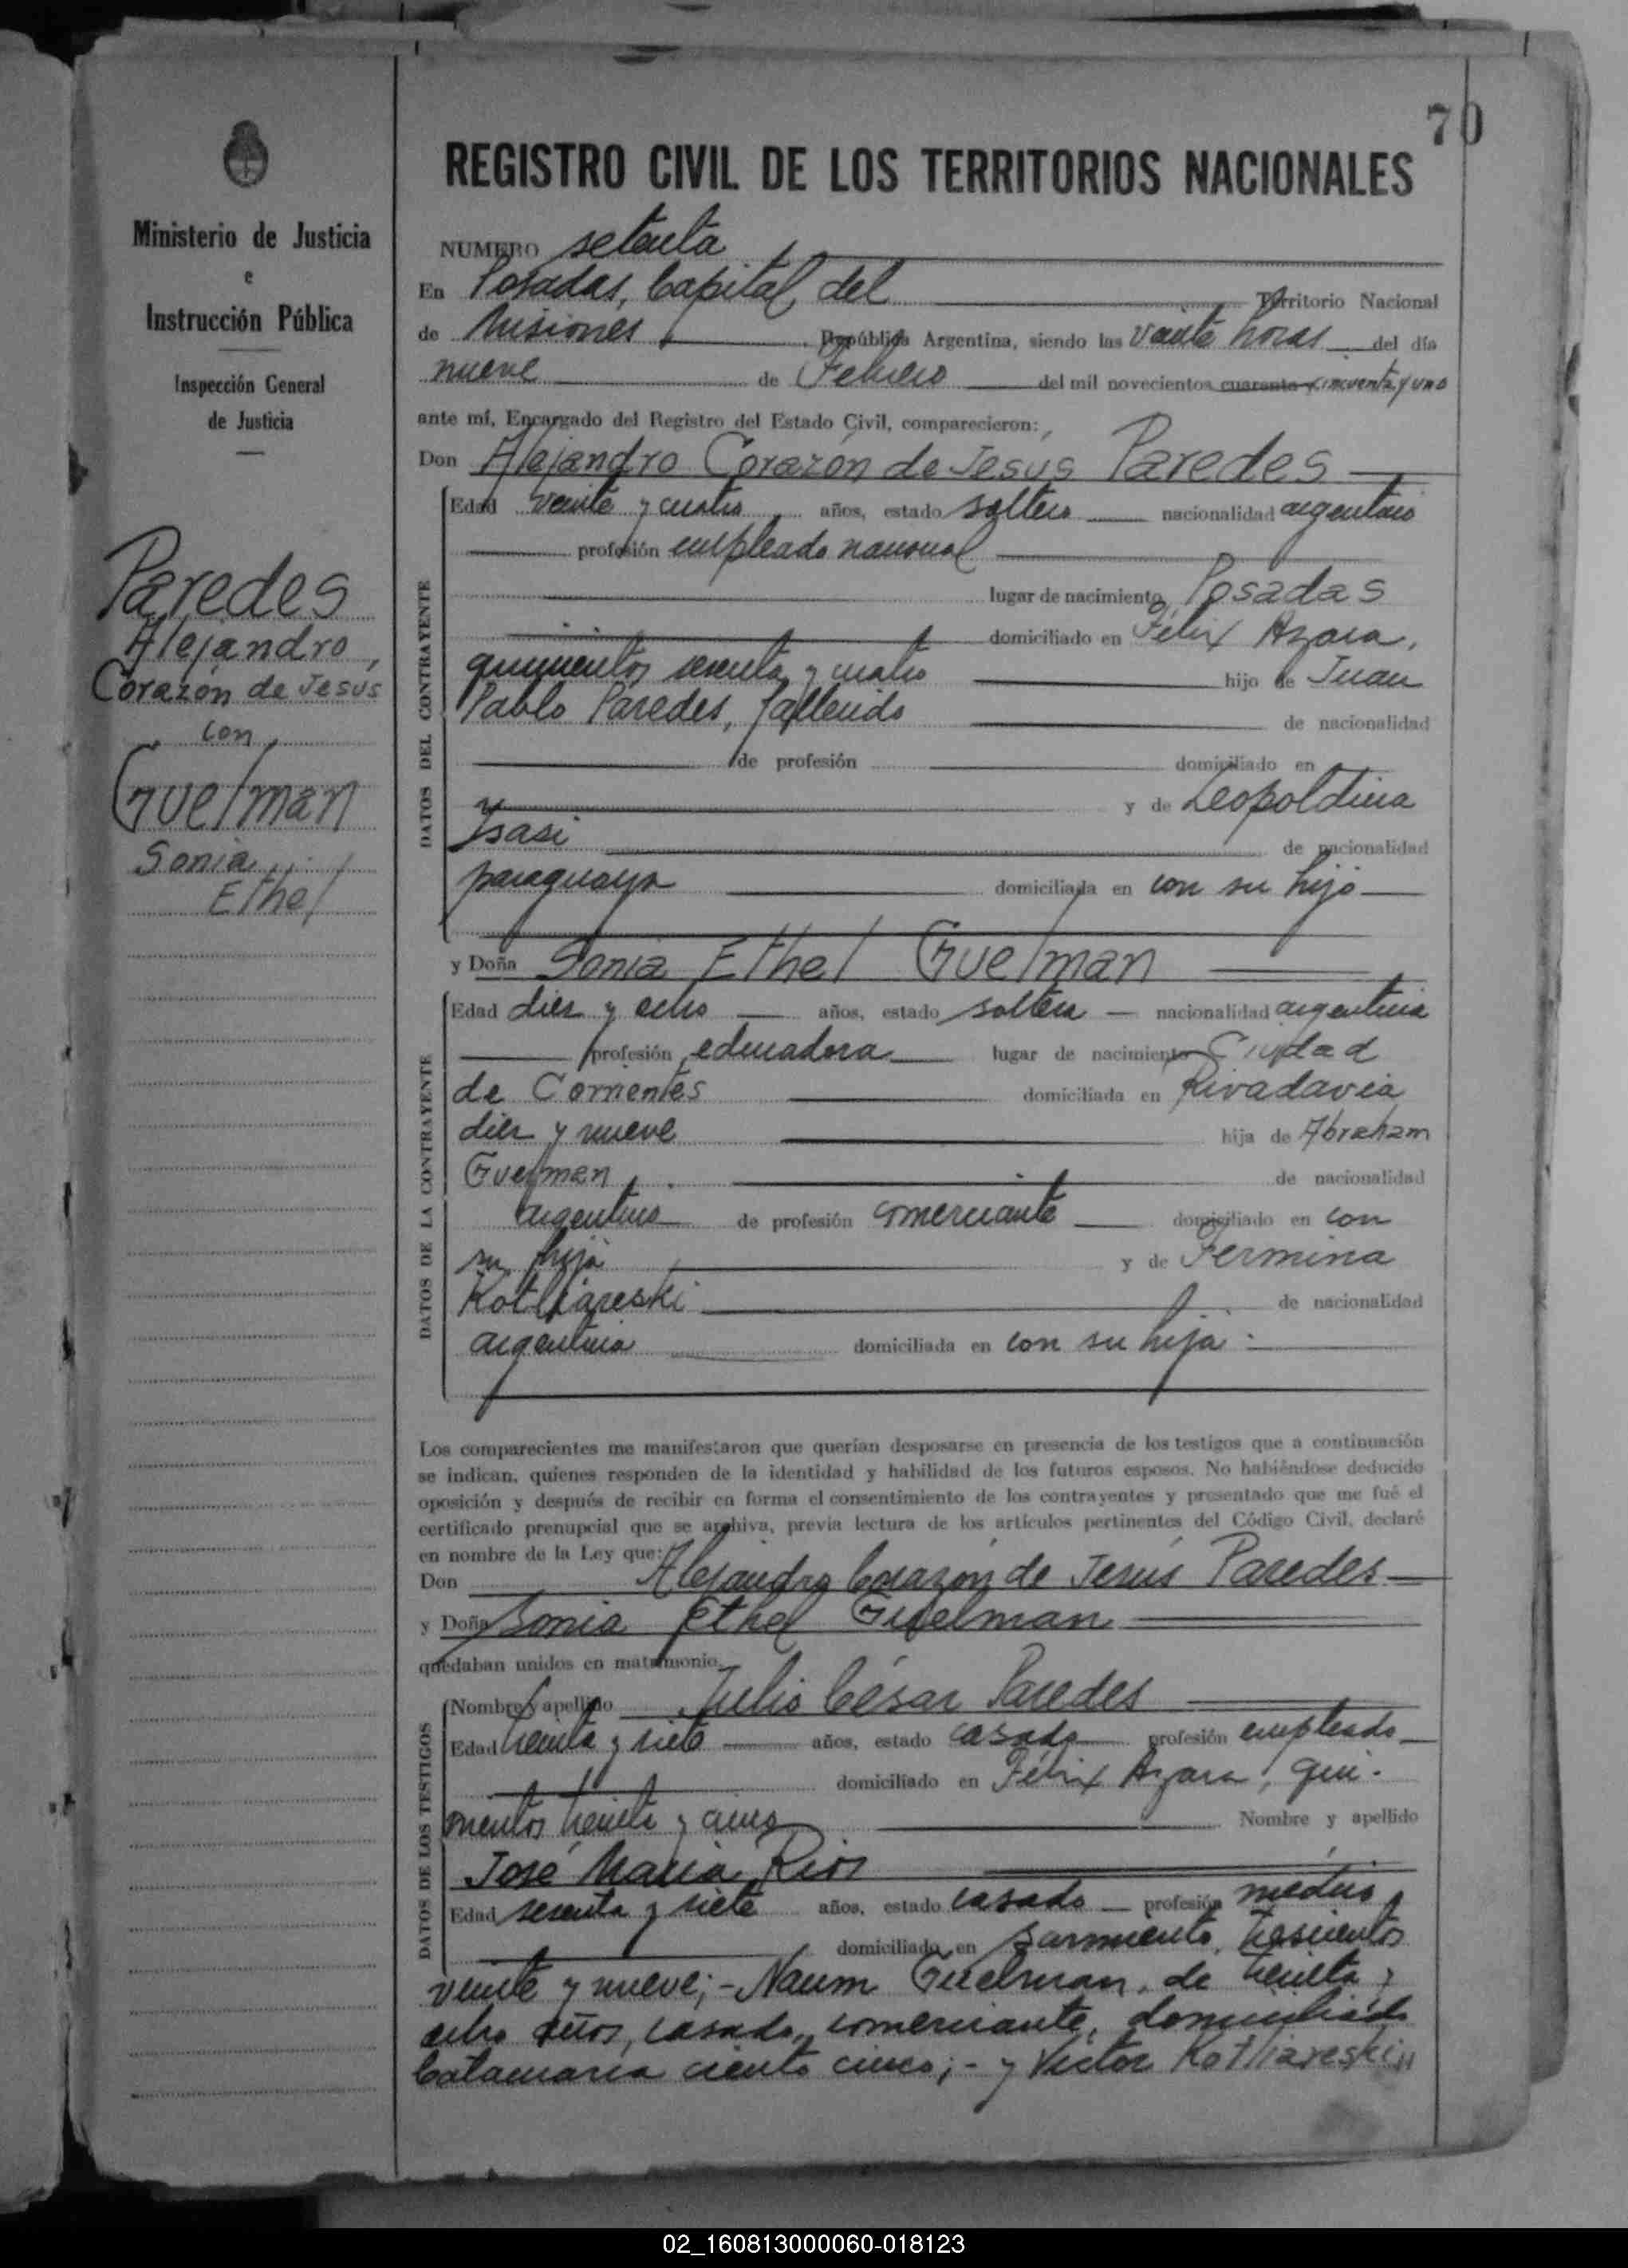 70
REGISTRO CIVIL DE LOS TERRITORIOS NACIONALES
Ministerio de Justicia
e
Instrucción Pública
Inspección General
de Justicia
Paredes
Alejandro,
Corazón de Jesús
con
Guelman
Sonia
Ethel
NUMERO setenta
En Posadas, Capital, del Territorio Nacional
de Misiones, República Argentina, siendo las veinte horas del día
nueve de Febrero del mil novecientos cuarenta y cincuenta y uno
ante mí, Encargado del Registro del Estado Civil, comparecieron:
Don Alejandro Corazón de Jesús Paredes
DATOS DEL CONTRAYENTE
Edad veinte y cuatro años, estado soltero nacionalidad argentino
profesión empleado nacional
lugar de nacimiento Posadas
domiciliado en Félix Azara,
quinientos sesenta y cuatro hijo de Juan
Pablo Paredes, fallecido de nacionalidad
de profesión domiciliado en
y de Leopoldina
Isasi de nacionalidad
paraguaya domiciliada en con su hijo
y Doña Sonia Ethel Guelman
DATOS DE LA CONTRAYENTE
Edad diez y ocho años, estado soltera nacionalidad argentina
profesión educadora lugar de nacimiento Ciudad
de Corrientes domiciliada en Rivadavia
diez y nueve hija de Abraham
Guelman de nacionalidad
argentino de profesión comerciante domiciliado en con
su hija y de Fermina
Kotliareski de nacionalidad
argentina domiciliada en con su hija.
Los comparecientes me manifestaron que querían desposarse en presencia de los testigos que a continuación
se indican, quienes responden de la identidad y habilidad de los futuros esposos. No habiéndose deducido
oposición y después de recibir en forma el consentimiento de los contrayentes y presentado que me fué el
certificado prenupcial que se archiva, previa lectura de los artículos pertinentes del Código Civil, declaré
en nombre de la Ley que:
Don Alejandro Corazón de Jesús Paredes
y Doña Sonia Ethel Guelman
quedaban unidos en matrimonio.
DATOS DE LOS TESTIGOS
Nombre y apellido Julio César Paredes
Edad treinta y siete años, estado casado profesión empleado
domiciliado en Félix Azara, qui-
nientos treinta y cinco Nombre y apellido
José María Rios
Edad sesenta y siete años, estado casado profesión médico,
domiciliado en Sarmiento, trescientos
veinte y nueve; - Naum Guelman, de treinta y
ocho años, casado, comerciante, domiciliado
Catamarca ciento cinco; - y Víctor Kotliareski
02_160813000060-018123